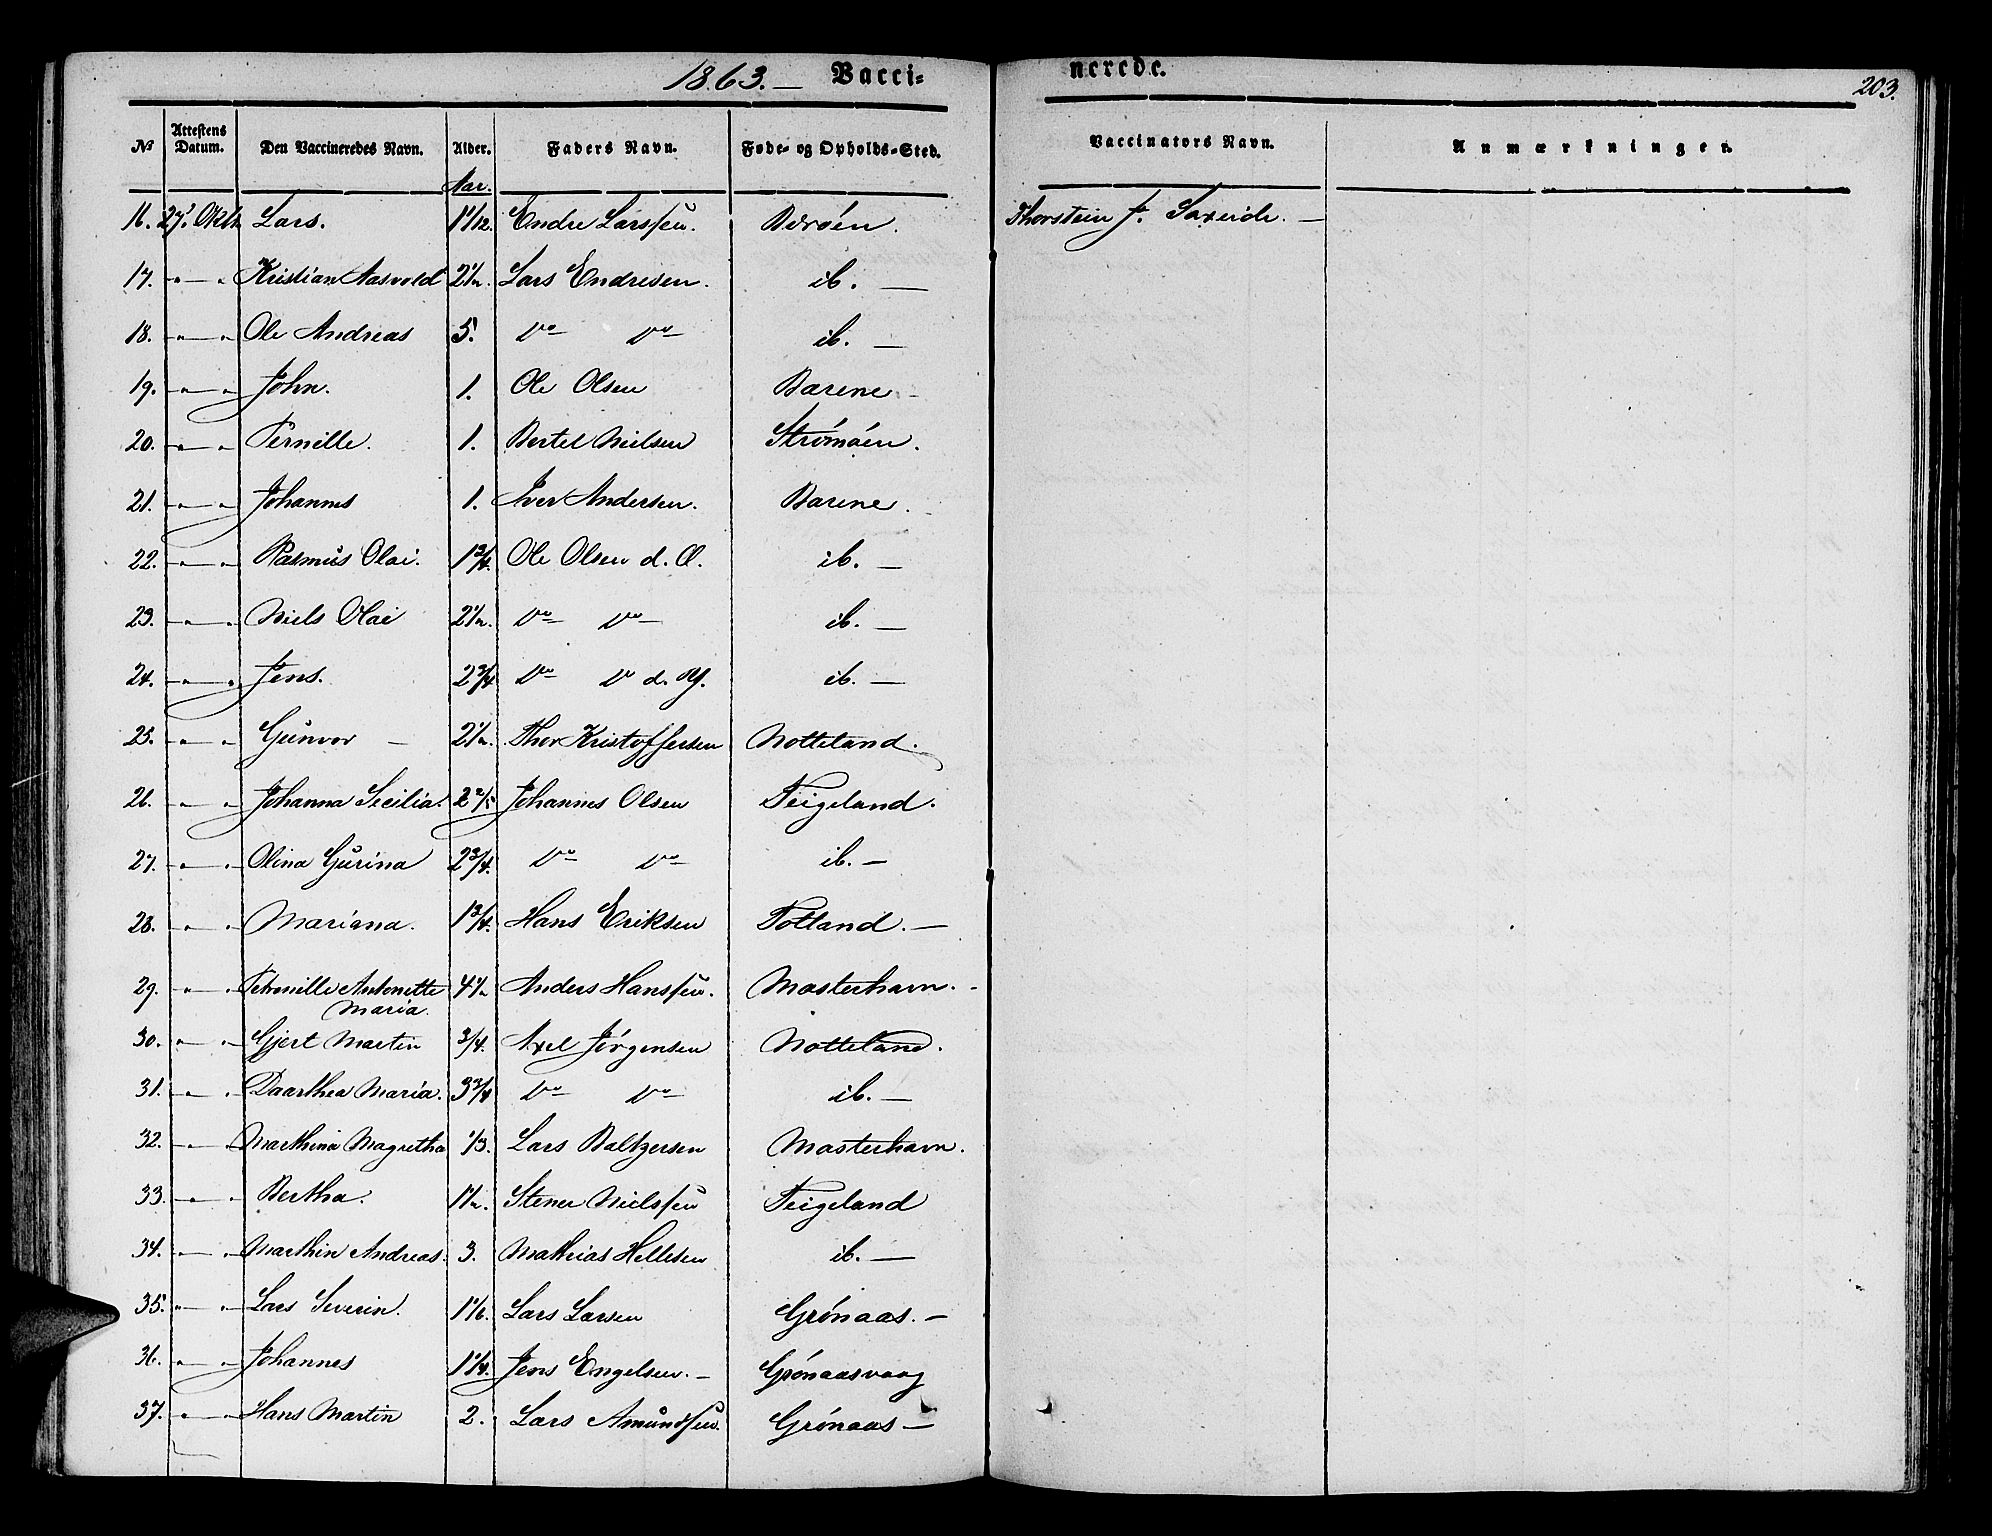 1863. — Vacci=
nerede. 203.
№ Attestens Datum. Den Vaccineredes Navn. Alder. Faders Navn. Føde= og Opholds=Sted. Vaccinators Navn. Anmærkninger.
Aar.
16. 27' Oktb. Lars. 1 1/12. Endre Larssen. Børøen. Thorstein J. Saxeide. —
17. " — " Kristian Aasvold 2 1/2. Lars Endresen. ib. —
18. " — " Ole Andreas 5. Do Do ib. —
19. " — " John. 1. Ole Olsen Barene —
20. " — " Pernille. 1. Bertel Nielsen Strømøen.
21. " — " Johannes 1. Iver Andersen. Barene.
22. " — " Rasmus Olai. 1 3/4. Ole Olsen d. Æ. ib. —
23. " — " Niels Olai 2 1/2. Do Do ib. —
24. " — " Jens. 2 3/4 Do D d. Y. ib. —
25. " — " Gunvor — 2 1/2. Thor Kristoffersen Notteland.
26. " — " Johanna Secilia. 2 2/5 Johannes Olsen Teigeland.
27. " — " Olina Gurina 2 3/4. Do Do ib. —
28. " — " Mariana. 1 3/4. Hans Eriksen Totland. —
29. " — " Petronille Antonette 4 1/2 Anders Hanssen. Mosterhavn. -
Maria.
30. " — " Gjert Martin 3/4. Axel Jørgensen Notteland.
31. " — " Daarthea Maria. 3 3/4 Do Do ib. —
32. " — " Marthina Magretha 1/3. Lars Baltzersen Mosterhavn.
33. " — " Bertha. 1 1/2. Stener Nielssen Teigeland
34. " — " Marthin Andreas. 3. Mathias Hellesen ib. —
35. " — " Lars Severin. 1 1/6. Lars Larsen Grønaas. —
36. " — " Johannes 1 1/4. Jens Engelsen. — Grønaasvaag
37. " — " Hans Martin 2. Lars Amundsen. Grønaas —